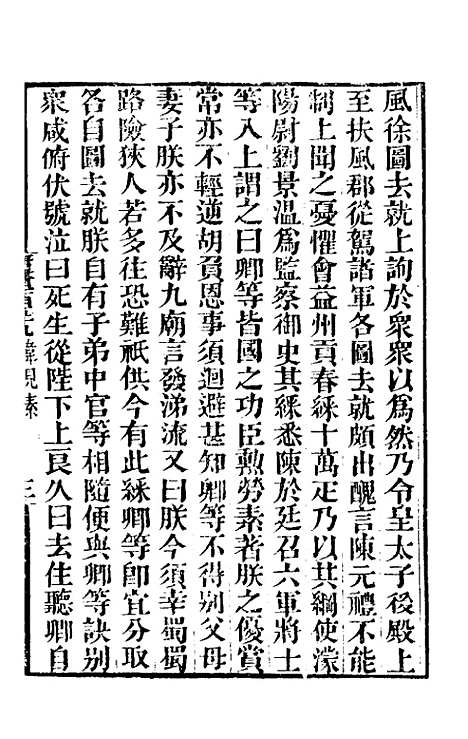 風徐圖去就上詢於衆衆以爲然乃令皇太子後殿上
至扶風郡從駕諸軍各圖去就頗出醜言陳元禮不能
制上聞之憂懼會益州貢春綵十萬疋乃以其綱使濛
陽尉劉景溫爲監察御史其綵悉陳於廷召六軍將士
等入上謂之曰卿等皆國之功臣勲勞素著朕之優賞
常亦不輕逆胡負恩事須迴避甚知卿等不得别父母
妻子朕亦不及辭九廟言發涕流又曰朕今須幸蜀蜀
路險狹人若多往恐難祇供今有此綵卿等卽宜分取
各自圖去就朕自有子弟中官等相隨便與卿等訣别
衆咸俯伏號泣曰死生從陛下上良久曰去住聽卿自
韋見素 三